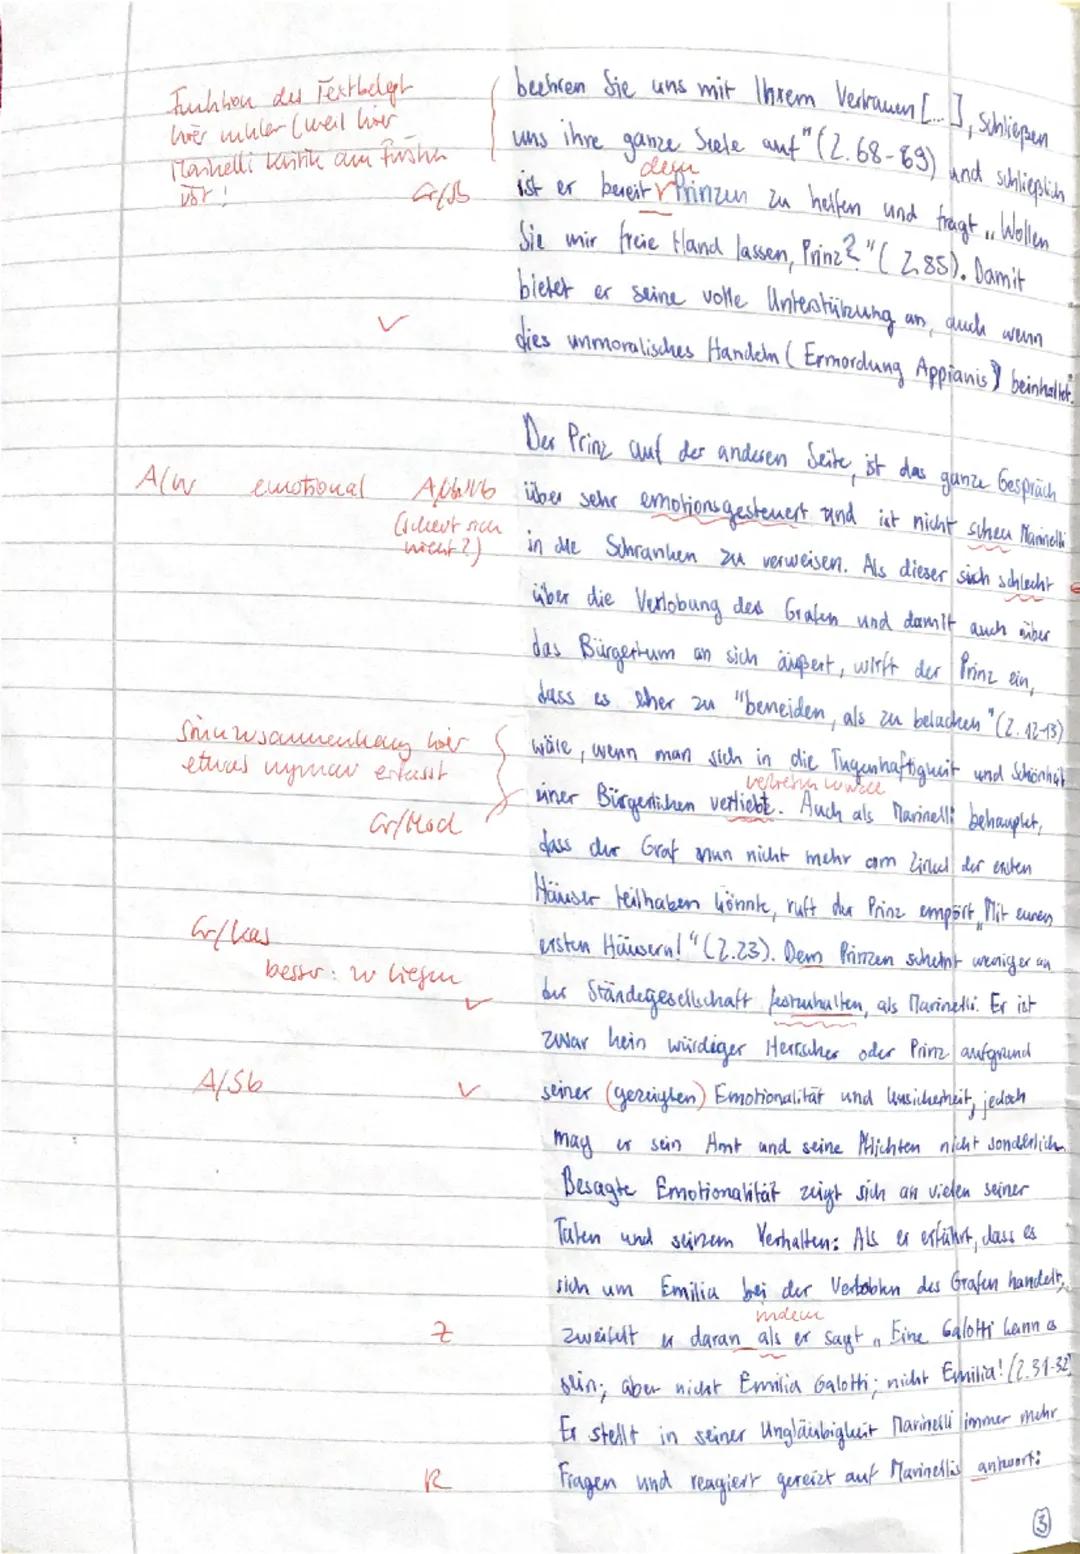 Funktion des Textbelegs
hier unklar (weil hier
Marinelli Kritik am Fürsten
übt!
Gr/Sb
beehren Sie uns mit Ihrem Vertrauen [...], schließen
uns ihre ganze Seele auf" (Z. 68-69) und schließlich
dem
ist er bereit Prinzen zu helfen und fragt „Wollen
Sie mir freie Hand lassen, Prinz?" (Z. 85). Damit
bietet er seine volle Unterstützung an, auch wenn
✓
dies unmoralisches Handeln (Ermordung Appianis) beinhaltet.
Der Prinz auf der anderen Seite, ist das ganze Gespräch
A/W emotional
über sehr emotionsgesteuert und ist nicht scheu Marinelli
(schert sich
nicht?)
in die Schranken zu verweisen. Als dieser sich schlecht
über die Verlobung des Grafen und damit auch über
das Bürgertum an sich äußert, wirft der Prinz ein,
dass es eher zu "beneiden, als zu belachen" (Z. 12-13)
Sinnzusammenhang hier
etwas ungenau erfasst
Gr/Mod
wäre, wenn man sich in die Tugenhaftigkeit und Schönheit
einer Bürgerlichen verliebt. Auch als Marinelli behauptet,
dass der Graf nun nicht mehr am Zirkel der ersten
Häuser teilhaben könnte, ruft der Prinz empört „Mit euren
Gr/Kas
ersten Häusern!" (Z.23). Dem Prinzen scheint weniger an
besser: zu liegen
✓
der Ständegesellschaft festzuhalten, als Marinelli. Er ist
zwar kein würdiger Herrscher oder Prinz aufgrund
A/Sb ✓
seiner (gezeigten) Emotionalität und Unsicherheit, jedoch
mag er sein Amt und seine Pflichten nicht sonderlich.
Besagte Emotionalität zeigt sich an vielen seiner
Taten und seinem Verhalten: Als er erfährt, dass es
sich um Emilia bei der Verlobten des Grafen handelt,
indem
Z
zweifelt er daran als er sagt „Eine Galotti kann es
sein; aber nicht Emilia Galotti; nicht Emilia! (Z. 31-32)
Er stellt in seiner Ungläubigkeit Marinelli immer mehr
R
Fragen und reagiert gereizt auf Marinellis antwort:
3